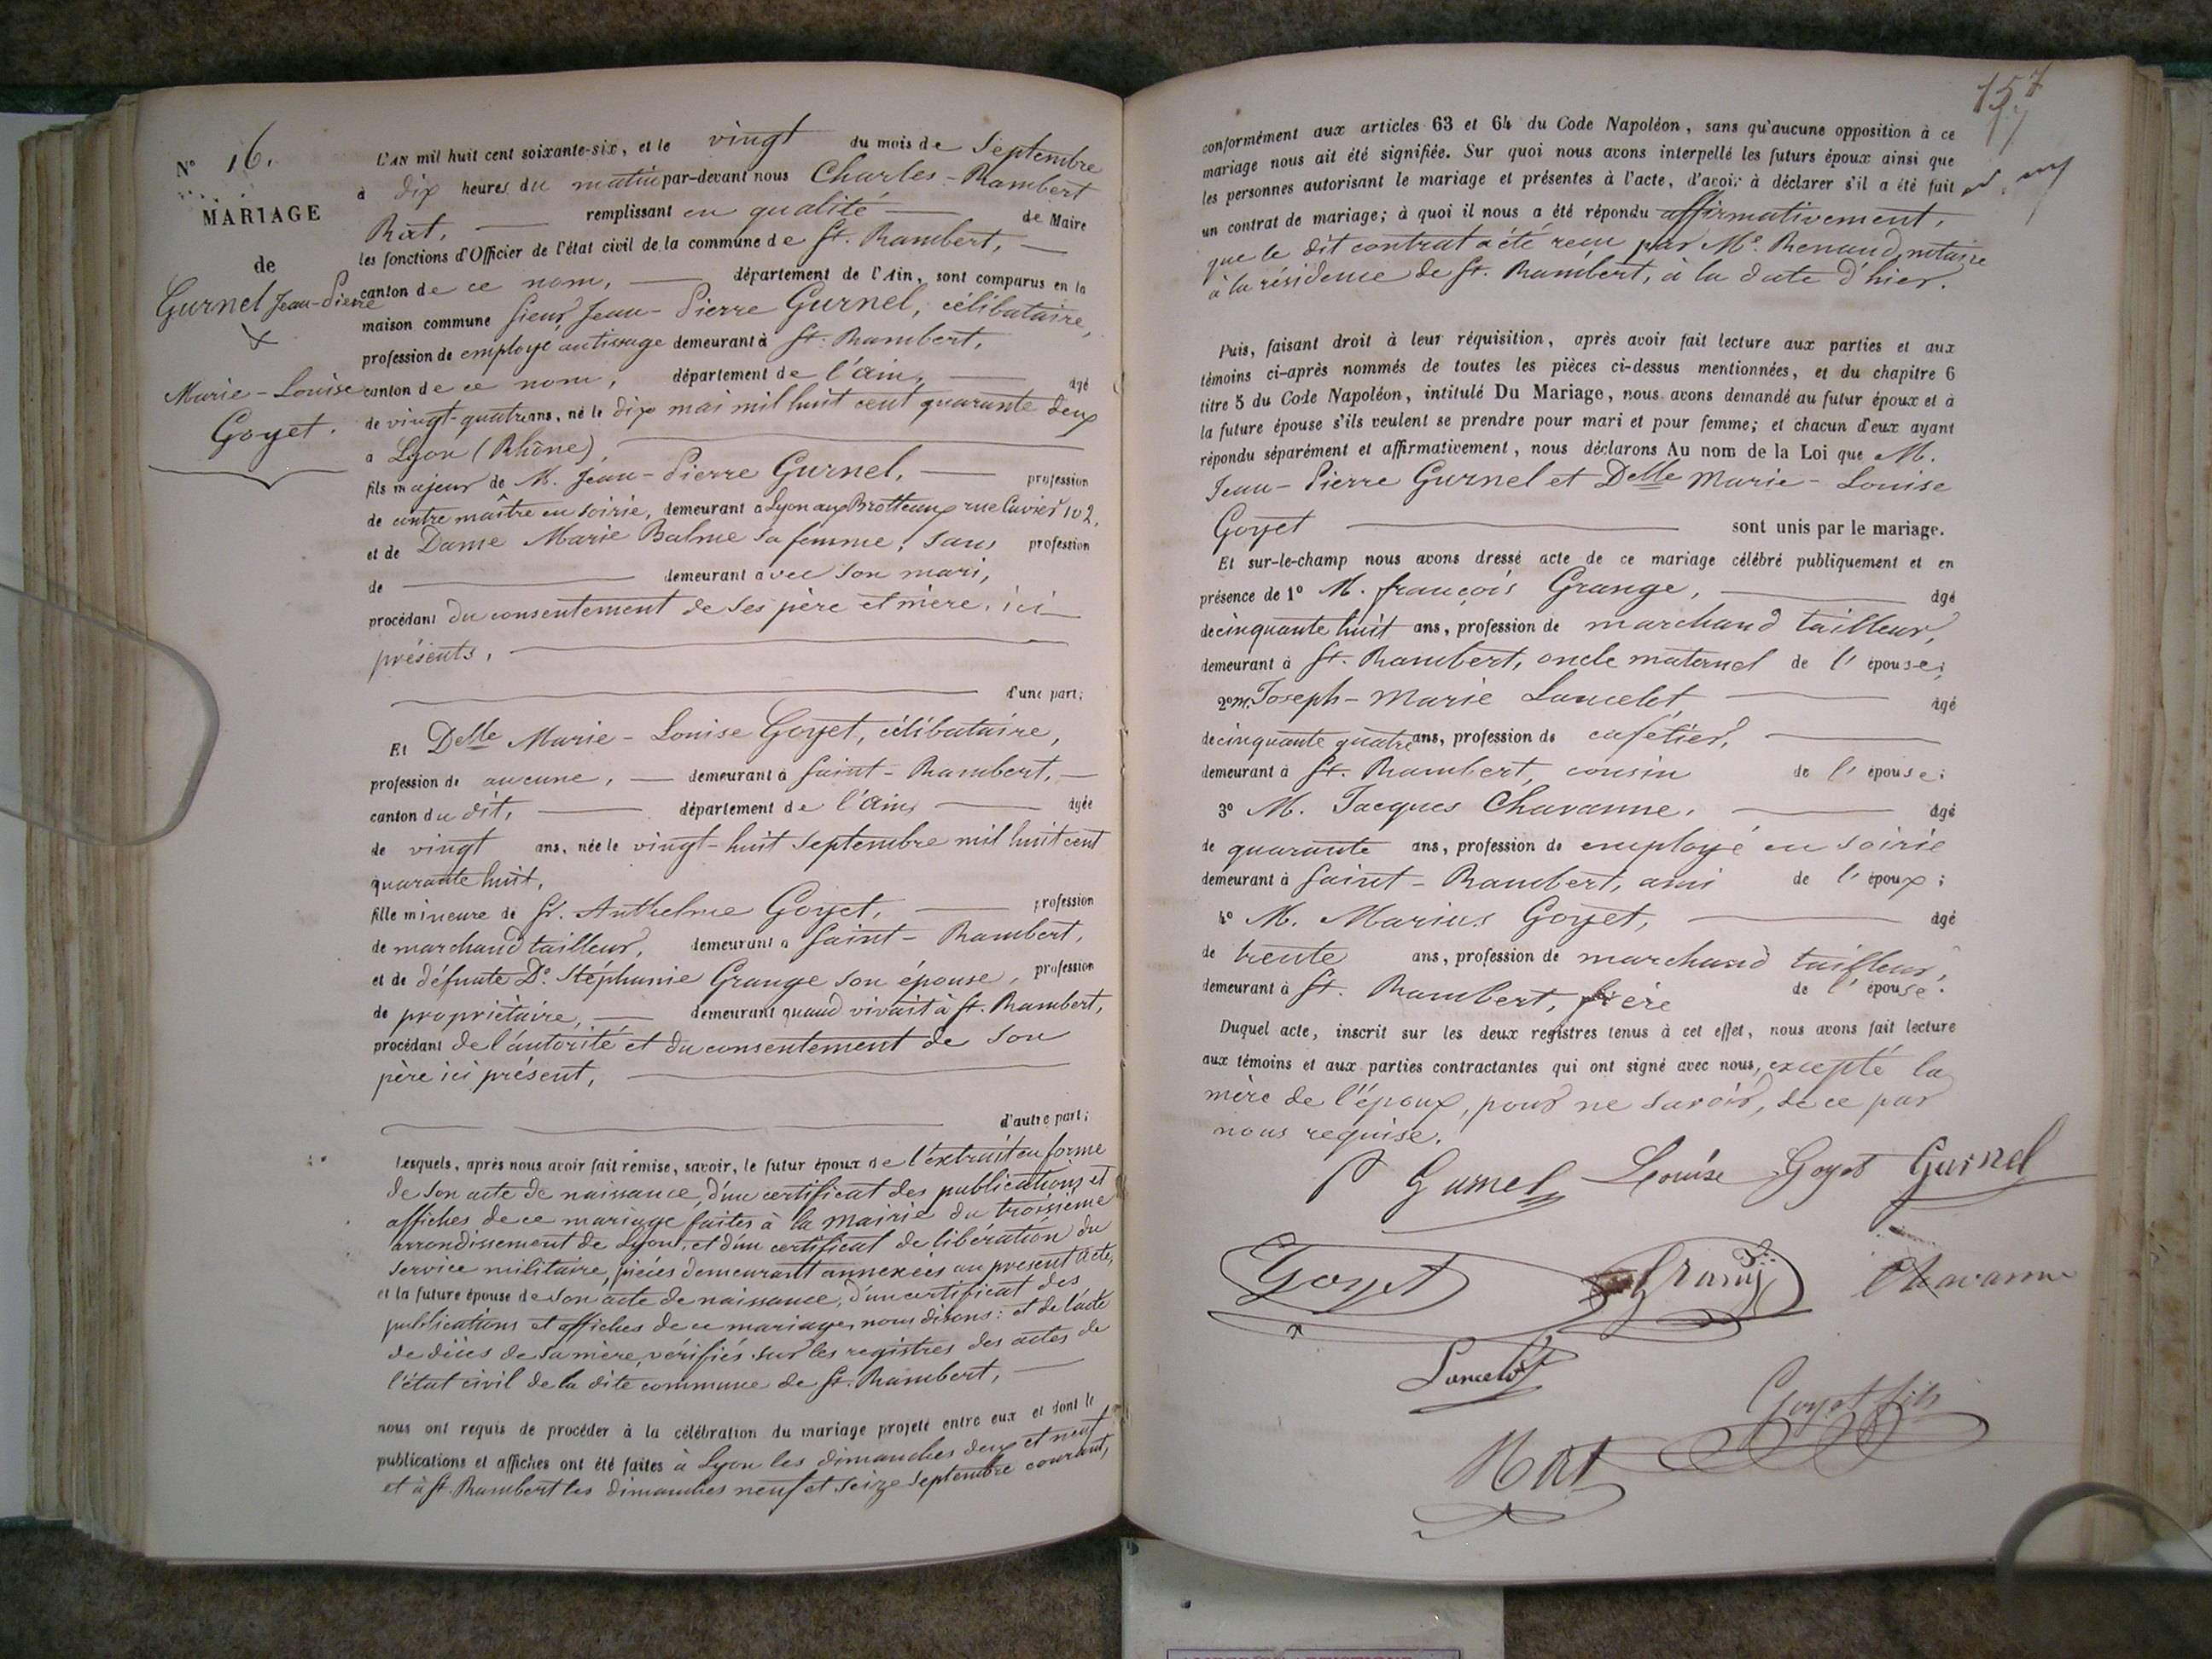 N° 16.
MARIAGE
de
Gurnel Jean-Pierre
&
Marie-Louise
Goyet.
L'AN mil huit cent soixante-six, et le vingt du mois de Septembre
à dix heures du matin par-devant nous Charles-Rambert
Rat, remplissant en qualité de Maire
les fonctions d'Officier de l'état civil de la commune de St. Rambert,
canton de ce nom, département de l'Ain, sont comparus en la
maison commune Sieur Jean-Pierre Gurnel, célibataire,
profession de employé au tissage demeurant à St. Rambert,
canton de ce nom, département de l'ain, âgé
de vingt-quatre ans, né le dix mai mil huit cent quarante deux
à Lyon (Rhône),
fils majeur de M. Jean-Pierre Gurnel, profession
de contre maître en soirie, demeurant à Lyon aux Brotteaux rue Cuvier 102,
et de Dame Marie Balme sa femme, sans profession
de demeurant avec son mari,
procédant du consentement de ses père et mère, ici
présents,
d'une part;
Et Delle Marie-Louise Goyet, célibataire,
profession de aucune, demeurant à Saint-Rambert,
canton du dit, département de l'ain, âgée
de vingt ans, née le vingt-huit septembre mil huit cent
quarante huit,
fille mineure de Sr. Anthelme Goyet, profession
de marchand tailleur, demeurant à Saint-Rambert,
et de défunte De. Stéphanie Grange son épouse, profession
de propriétaire, demeurant quand vivait à St. Rambert,
procédant de l'autorité et du consentement de son
père ici présent,
d'autre part;
Lesquels, après nous avoir fait remise, savoir, le futur époux de l'extrait en forme
de son acte de naissance, d'un certificat des publications et
affiches de ce mariage faites à la mairie du troisième
arrondissement de Lyon, et d'un certificat de libération du
service militaire, pièces demeurant annexées au présent acte,
et la future épouse de son acte de naissance, d'un certificat des
publications et affiches de ce mariage, nous disons: et de l'acte
de décès de sa mère, vérifiés sur les registres des actes de
l'état civil de la dite commune de St. Rambert,
nous ont requis de procéder à la célébration du mariage projeté entre eux et dont les
publications et affiches ont été faites à Lyon les dimanches deux et neuf
et à St. Rambert les dimanches neuf et seize septembre courant,
157
conformément aux articles 63 et 64 du Code Napoléon, sans qu'aucune opposition à ce
mariage nous ait été signifiée. Sur quoi nous avons interpellé les futurs époux ainsi que
les personnes autorisant le mariage et présentes à l'acte, d'avoir à déclarer s'il a été fait
un contrat de mariage; à quoi il nous a été répondu affirmativement,
que le dit contrat a été reçu par Me. Renaud notaire
à la résidence de St. Rambert, à la date d'hier.
Puis, faisant droit à leur réquisition, après avoir fait lecture aux parties et aux
témoins ci-après nommés de toutes les pièces ci-dessus mentionnées, et du chapitre 6
titre 5 du Code Napoléon, intitulé Du Mariage, nous avons demandé au futur époux et à
la future épouse s'ils veulent se prendre pour mari et pour femme; et chacun d'eux ayant
répondu séparément et affirmativement, nous déclarons Au nom de la Loi que M.
Jean-Pierre Gurnel et Delle Marie-Louise
Goyet sont unis par le mariage.
Et sur-le-champ nous avons dressé acte de ce mariage célébré publiquement et en
présence de 1° M. françois Grange, âgé
de cinquante huit ans, profession de marchand tailleur,
demeurant à St. Rambert, oncle maternel de l'épouse;
2° M. Joseph-Marie Lancelot âgé
de cinquante quatre ans, profession de cafétier,
demeurant à St. Rambert, cousin de l'épouse;
3° M. Jacques Chavanne, âgé
de quarante ans, profession de employé en soirie
demeurant à Saint-Rambert, ami de l'époux;
4° M. Marius Goyet, âgé
de trente ans, profession de marchand tailleur,
demeurant à St. Rambert, frère de l'épouse.
Duquel acte, inscrit sur les deux registres tenus à cet effet, nous avons fait lecture
aux témoins et aux parties contractantes qui ont signé avec nous, excepté la
mère de l'époux, pour ne savoir, de ce par
nous requise.
P Gurnel Louise Goyet Gurnel
Goyet Grange Chavanne
Lancelot
Goyet fils
Rat